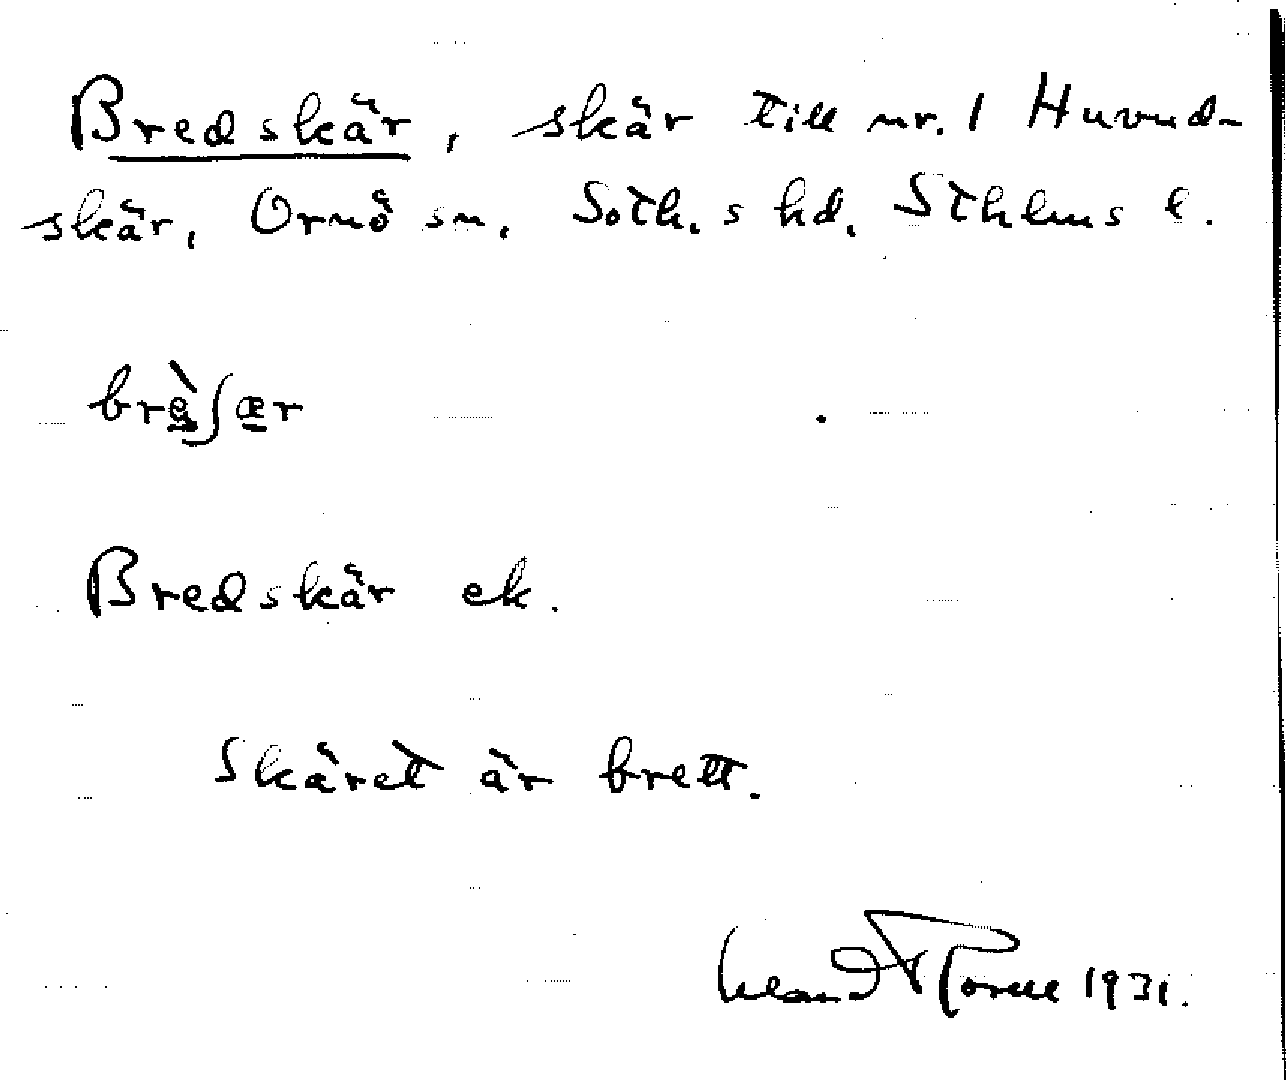 Bredskär, skär till nr. 1 Huvud-
skär, Ornö sn, Soth.s hd, Sthlms l.
brè̱ʃæ̱r
Bredskär ek.
Skäret är brett.
1931.